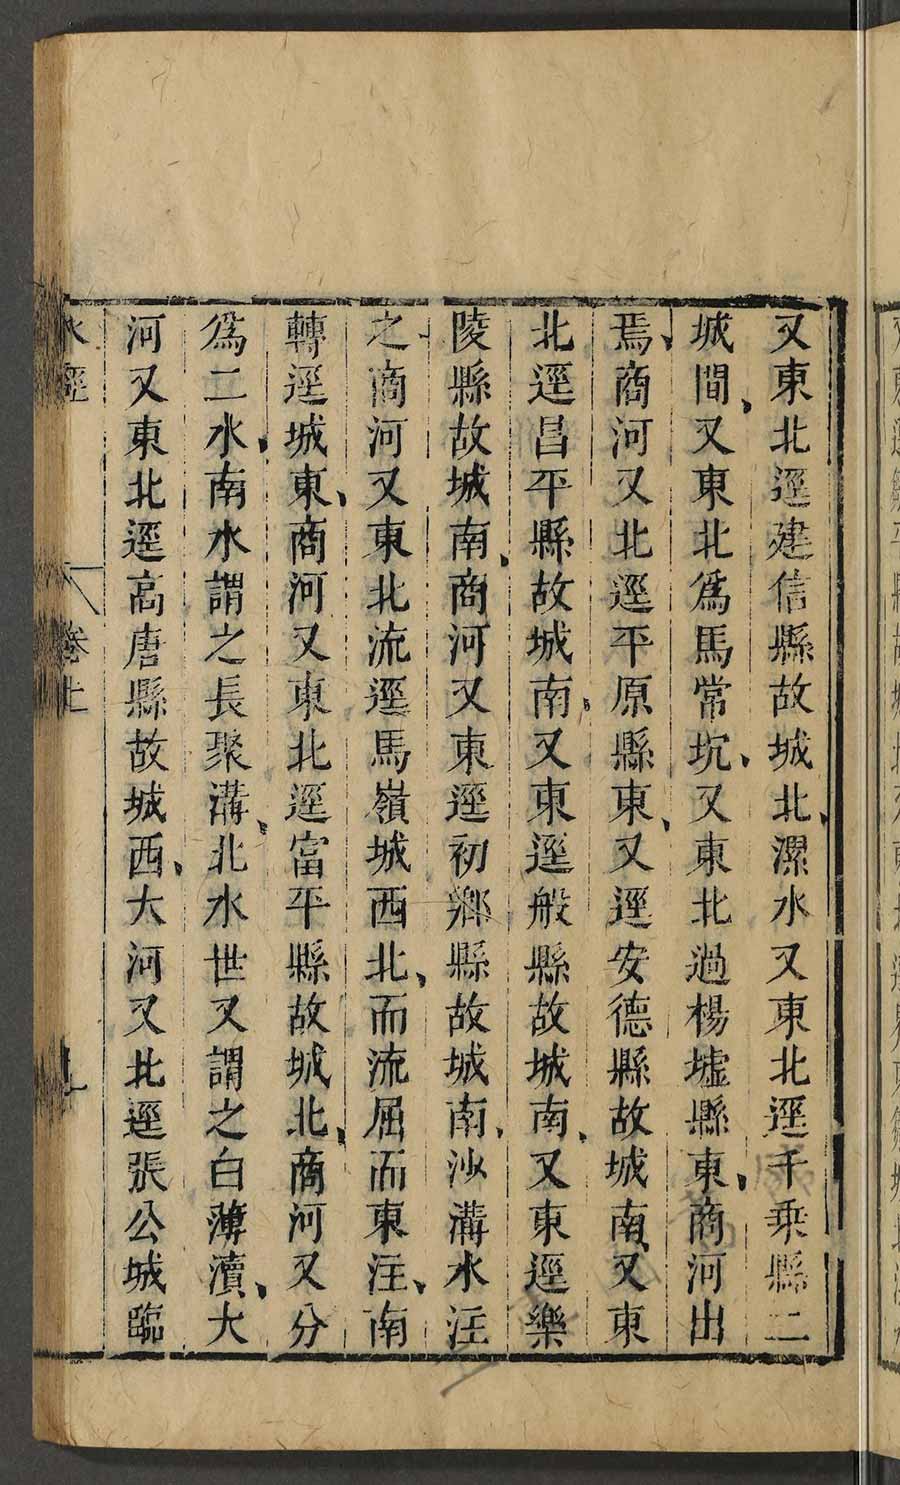 又東北逕建信縣故城北、漯水又東北逕千乗縣二
城間、又東北爲馬常坑、又東北過楊墟縣東、商河出
焉、商河又北逕平原縣東、又逕安德縣故城南、又東
北逕昌平縣故城南、又東逕般縣故城南、又東逕樂
陵縣故城南、商河又東逕初鄉縣故城南、沙溝水注
之、商河又東北流逕馬嶺城西北、而流屈而東注、南
轉逕城東、商河又東北逕富平縣故城北、商河又分
爲二水、南水謂之長聚溝、北水世又謂之白薄瀆、大
河又東北逕高唐縣故城西、大河又北逕張公城臨
水經 卷上